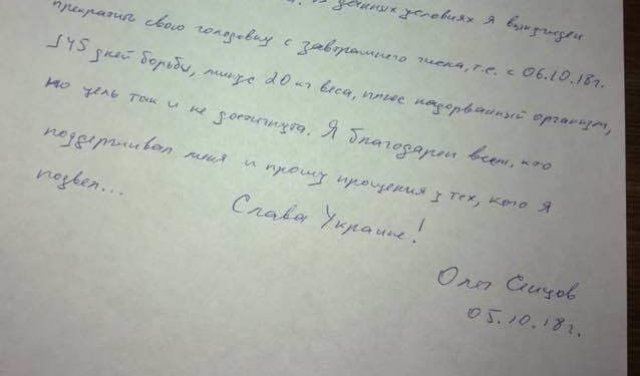 данных условиях я вынужден
прекратить свою голодовку с завтрашнего числа, т.е. с 06.10.18г.
145 дней борьбы, минус 20 кг веса, плюс надорванный организм,
но цель так и не достигнута. Я благодарен всем, кто
поддерживал меня и прошу прощения у тех, кого я
подвел...
Слава Украине!
Олег Сенцов
05.10.18г.